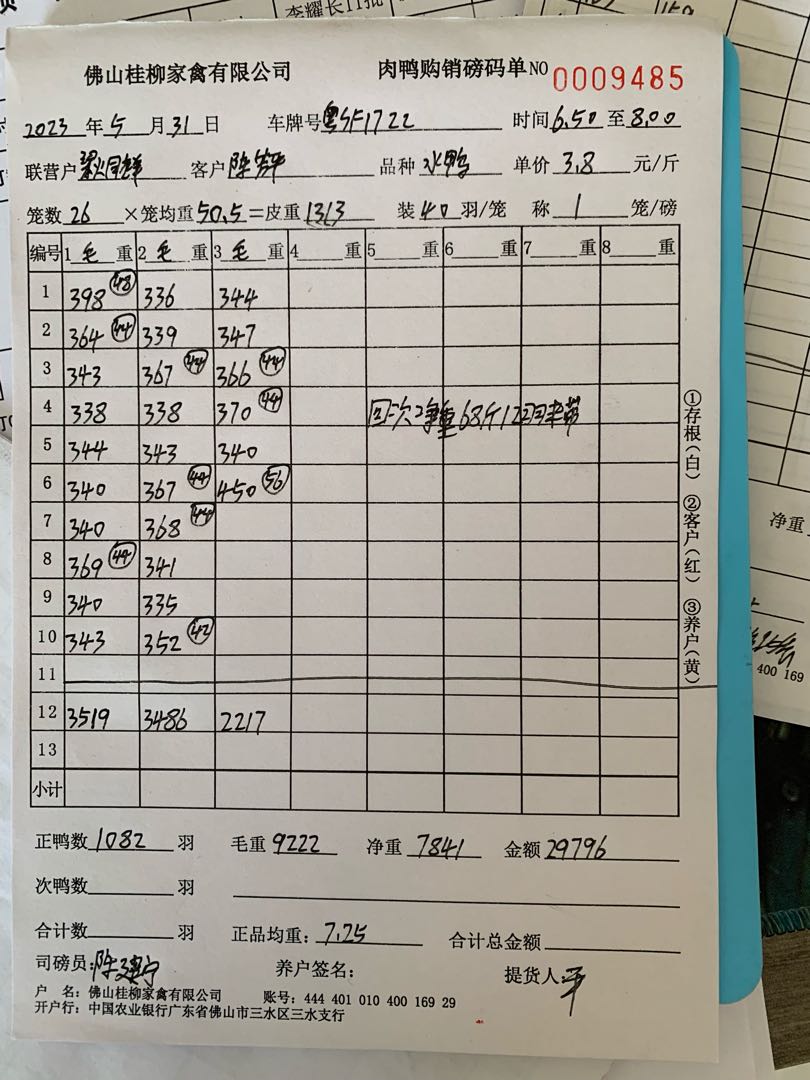 李耀长11批
佛山桂柳家禽有限公司 肉鸭购销磅码单 NO 0009485
2023 年 5 月 31 日 车牌号 粤SF1722 时间 6.50 至 8.00
联营户 客户 品种 水鸭 单价 3.8 元/斤
笼数 26 ×笼均重 50.5 =皮重 1313 装 40 羽/笼 称 1 笼/磅
编号 1 毛 重 2 毛 重 3 毛 重 4 重 5 重 6 重 7 重 8 重
1 398 (48) 336 344
2 364 (44) 339 347
3 343 367 (44) 366 (44)
4 338 338 370 (44) 回次净重68斤
5 344 343 340
6 340 367 (44) 450 (56)
7 340 368 (44)
8 369 (44) 341
9 340 335
10 343 352 (42)
11
12 3519 3486 2217
13
小计
①存根(白) ②客户(红) ③养户(黄)
正鸭数 1082 羽 毛重 9222 净重 7841 金额 29796
次鸭数 羽
合计数 羽 正品均重: 7.25 合计总金额
司磅员: 养户签名: 提货人: 平
户 名: 佛山桂柳家禽有限公司 账号: 444 401 010 400 169 29
开户行: 中国农业银行广东省佛山市三水区三水支行
净重
400 169